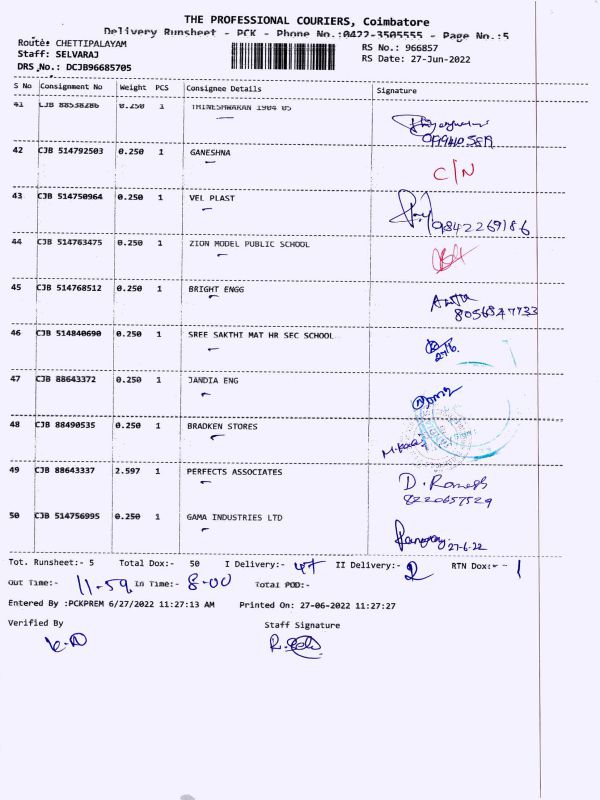 THE PROFESSIONAL COURIERS, Coimbatore
Delivery Runsheet - PCK - Phone No.:0422-3505555 - Page No.:5
Route: CHETTIPALAYAM
RS No.: 966857
Staff: SELVARAJ
RS Date: 27-Jun-2022
DRS No.: DCJB96685705
S No Consignment No Weight PCS Consignee Details Signature
41 CJB 88538286 0.250 1 THINESHWARAN 1904 05
42 CJB 514792503 0.250 1 GANESHNA C/N
43 CJB 514750964 0.250 1 VEL PLAST 9842269186
44 CJB 514763475 0.250 1 ZION MODEL PUBLIC SCHOOL
45 CJB 514768512 0.250 1 BRIGHT ENGG
46 CJB 514840690 0.250 1 SREE SAKTHI MAT HR SEC SCHOOL
47 CJB 88643372 0.250 1 JANDIA ENG
48 CJB 88490535 0.250 1 BRADKEN STORES
49 CJB 88643337 2.597 1 PERFECTS ASSOCIATES D. Ramesh
8220657529
50 CJB 514756995 0.250 1 GAMA INDUSTRIES LTD 27-6-22
Tot. Runsheet:- 5 Total Dox:- 50 I Delivery:- 47 II Delivery:- 2 RTN Dox:- - 1
Out Time:- 11-59 In Time:- 8-00 Total POD:-
Entered By :PCKPREM 6/27/2022 11:27:13 AM Printed On: 27-06-2022 11:27:27
Verified By Staff Signature